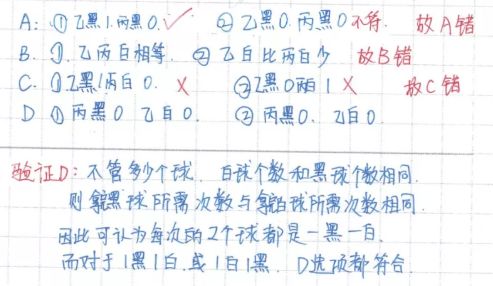 A: ① 乙黑1.丙黑0. ✓ ② 乙黑0.丙黑0不符. 故A错
B. ①.乙丙白相等. ② 乙白比丙白少 故B错
C. ① 乙黑1丙白0. X ② 乙黑0丙白1 X 故C错
D ① 丙黑0 乙白0. ② 丙黑0. 乙白0.
验证D: 不管多少个球. 白球个数和黑球个数相同.
则拿黑球所需次数与拿白球所需次数相同.
因此可认为每次的2个球都是一黑一白.
而对于1黑1白.或1白1黑. D选项都符合.